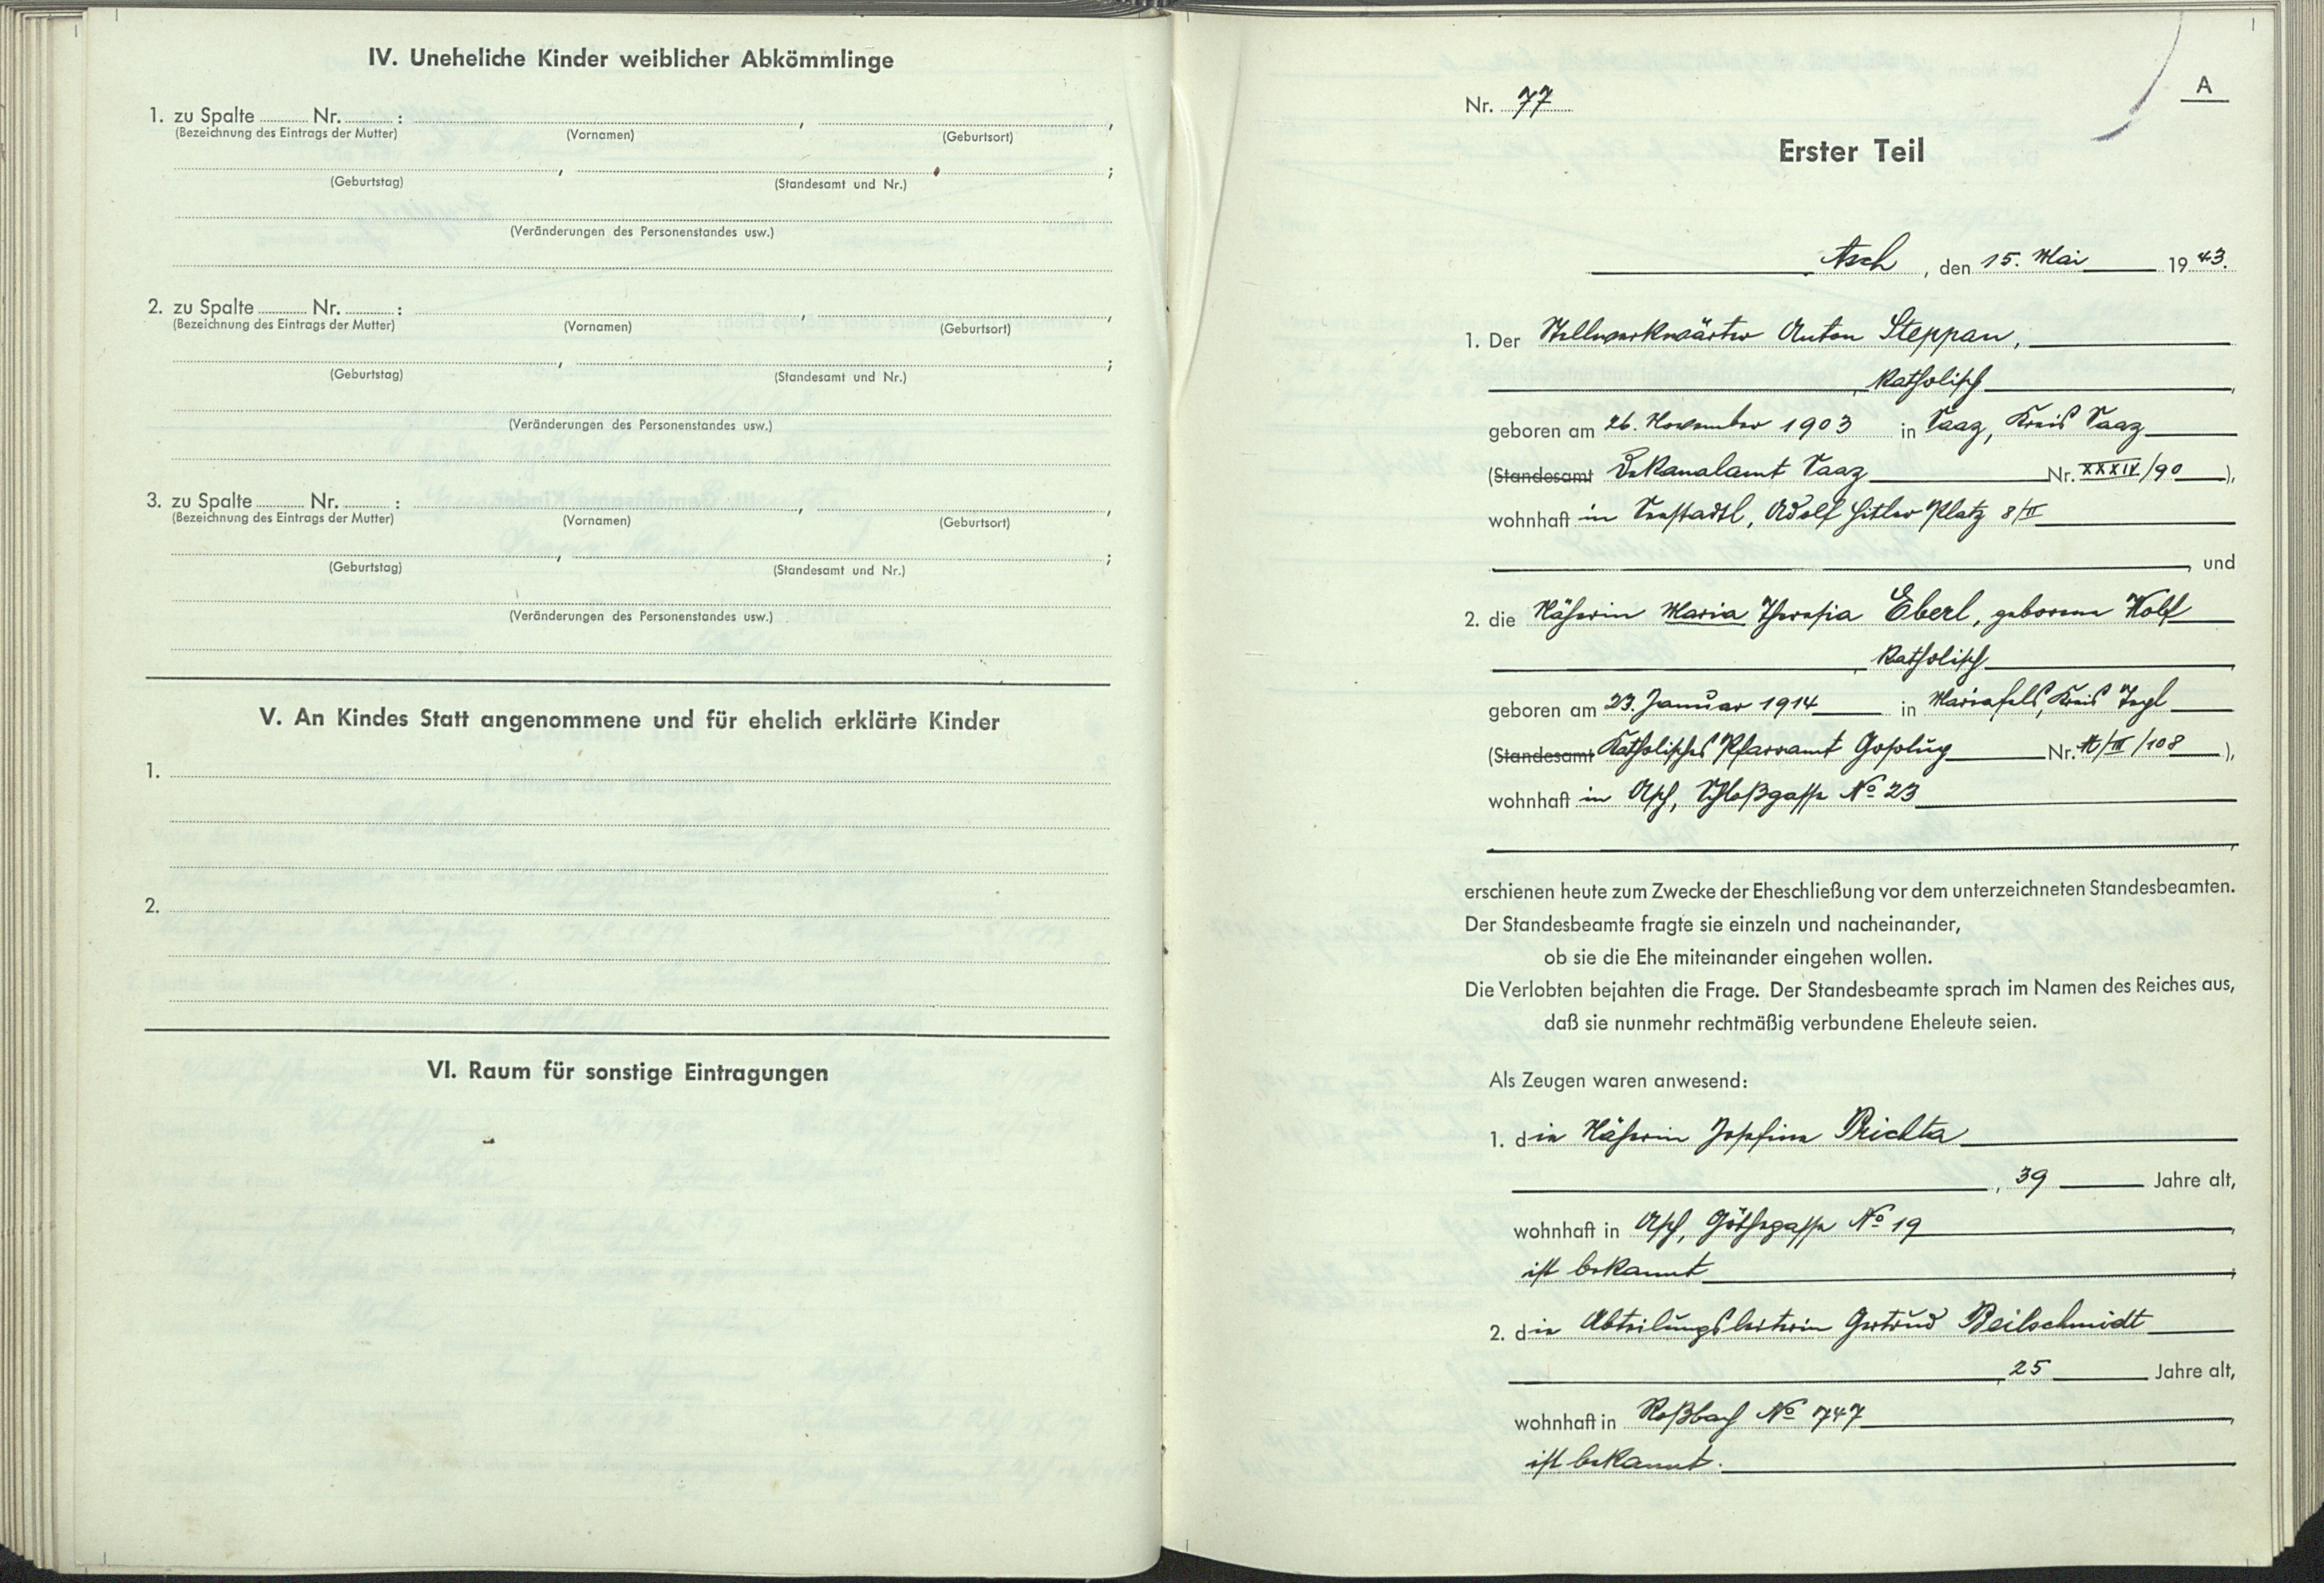 IV. Uneheliche Kinder weiblicher Abkömmlinge
1. zu Spalte ........ Nr. ........ : , ,
(Bezeichnung des Eintrags der Mutter) (Vornamen) (Geburtsort)
, ;
(Geburtstag) (Standesamt und Nr.)
(Veränderungen des Personenstandes usw.)
2. zu Spalte ........ Nr. ........ : , ,
(Bezeichnung des Eintrags der Mutter) (Vornamen) (Geburtsort)
, ;
(Geburtstag) (Standesamt und Nr.)
(Veränderungen des Personenstandes usw.)
3. zu Spalte ........ Nr. ........ : , ,
(Bezeichnung des Eintrags der Mutter) (Vornamen) (Geburtsort)
, ;
(Geburtstag) (Standesamt und Nr.)
(Veränderungen des Personenstandes usw.)
V. An Kindes Statt angenommene und für ehelich erklärte Kinder
1.
2.
VI. Raum für sonstige Eintragungen
A
Nr. 77
Erster Teil
Asch, den 15. Mai 1943.
1. Der Stellwerkwärter Anton Steppan,
, katholisch,
geboren am 26. November 1903 in Saaz, Kreis Saaz
(Standesamt Dekanalamt Saaz Nr. XXXIV/90),
wohnhaft in Neustadtl, Adolf Hitler Platz 8/II
, und
2. die Näherin Maria Theresia Eberl, geborene Wolf
, katholisch,
geboren am 23. Januar 1914 in Mariafels, Kreis Tepl
(Standesamt Katholisches Pfarramt Nr. /III/108),
wohnhaft in Asch, Schloßgasse No 23
,
erschienen heute zum Zwecke der Eheschließung vor dem unterzeichneten Standesbeamten.
Der Standesbeamte fragte sie einzeln und nacheinander,
ob sie die Ehe miteinander eingehen wollen.
Die Verlobten bejahten die Frage. Der Standesbeamte sprach im Namen des Reiches aus,
daß sie nunmehr rechtmäßig verbundene Eheleute seien.
Als Zeugen waren anwesend:
1. die Näherin Josefine Prichta
, 39 Jahre alt,
wohnhaft in Asch, Göthegasse No 19,
ist bekannt;
2. die Abteilungsleiterin Gertrud Beilschmidt
, 25 Jahre alt,
wohnhaft in Roßbach No 747,
ist bekannt.